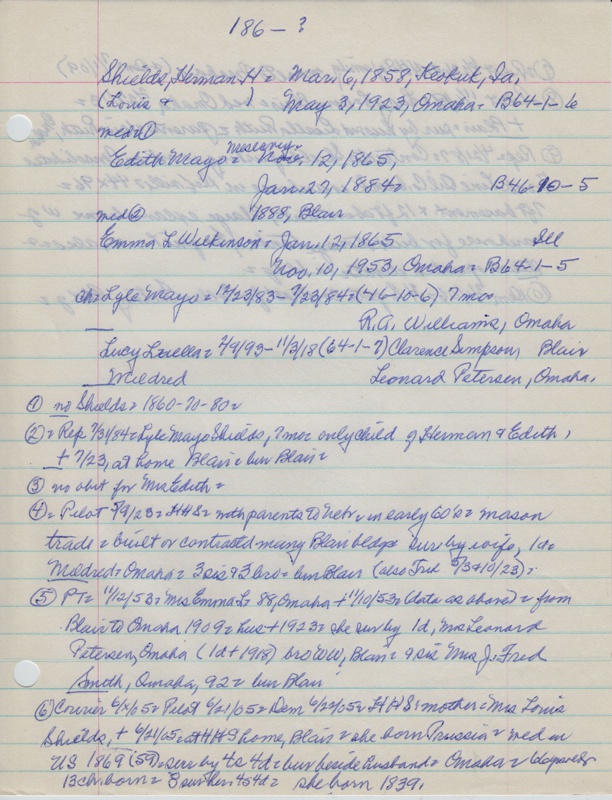 186-?
Shields, Herman H = Mar. 6, 1858, Keokuk, Ia.
(Louis & ) May 3, 1923, Omaha = B64-1-6
med ①
Edith Mayo = Nov. 12, 1865,
Jan. 27, 1884 = B46-10-5
med ② 1888, Blair
Emma L Wilkinson = Jan. 12, 1865 Ill
Nov. 10, 1953, Omaha = B64-1-5
ch = Lyle Mayo = 12/23/83 - 7/23/84 = (46-10-6), 7 mo.
R.A. Williams, Omaha
Lucy Luella = 2/9/93 - 11/3/18 (64-1-7) Clarence Simpson, Blair
Mildred Leonard Petersen, Omaha.
① no Shields = 1860-70-80 =
② = Rep 7/31/84 = Lyle Mayo Shields, 7 mo = only child of Herman & Edith,
+ 7/23, at home Blair = bur Blair =
③ no obit for Mrs Edith =
④ = Pilot 5/9/23 = HHS = with parents to Nebr = in early 60's = mason
trade = built or contracted many Blair bldgs sur by wife, 1d =
Mildred = Omaha = 3 sis & 3 bro = bur Blair (also Trib 5/3 & 10/23) =
⑤ PT = 11/12/53 = Mrs Emma L = 88, Omaha + 11/10/53 = (data as above) = from
Blair to Omaha 1909 = hus + 1923 = she sur by 1d, Mrs Leonard
Petersen, Omaha (1d + 1918) bro WW, Blair & sis Mrs J. Fred
Smith, Omaha, 92 = bur Blair
⑥ Courier = Pilot 6/21/05 = Dem 6/22/05 = HHS = mother = Mrs Louis
Shields, + 6/21/05 = at HHS home, Blair = she born Prussia = med in
US 1869 (59) = sur by 4s 4d = bur beside husband = Omaha =
13 ch. born = 8 sur her: 4s 4d = she born 1839.